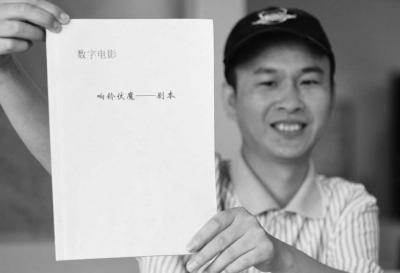 数字电影
响铃伏魔——剧本